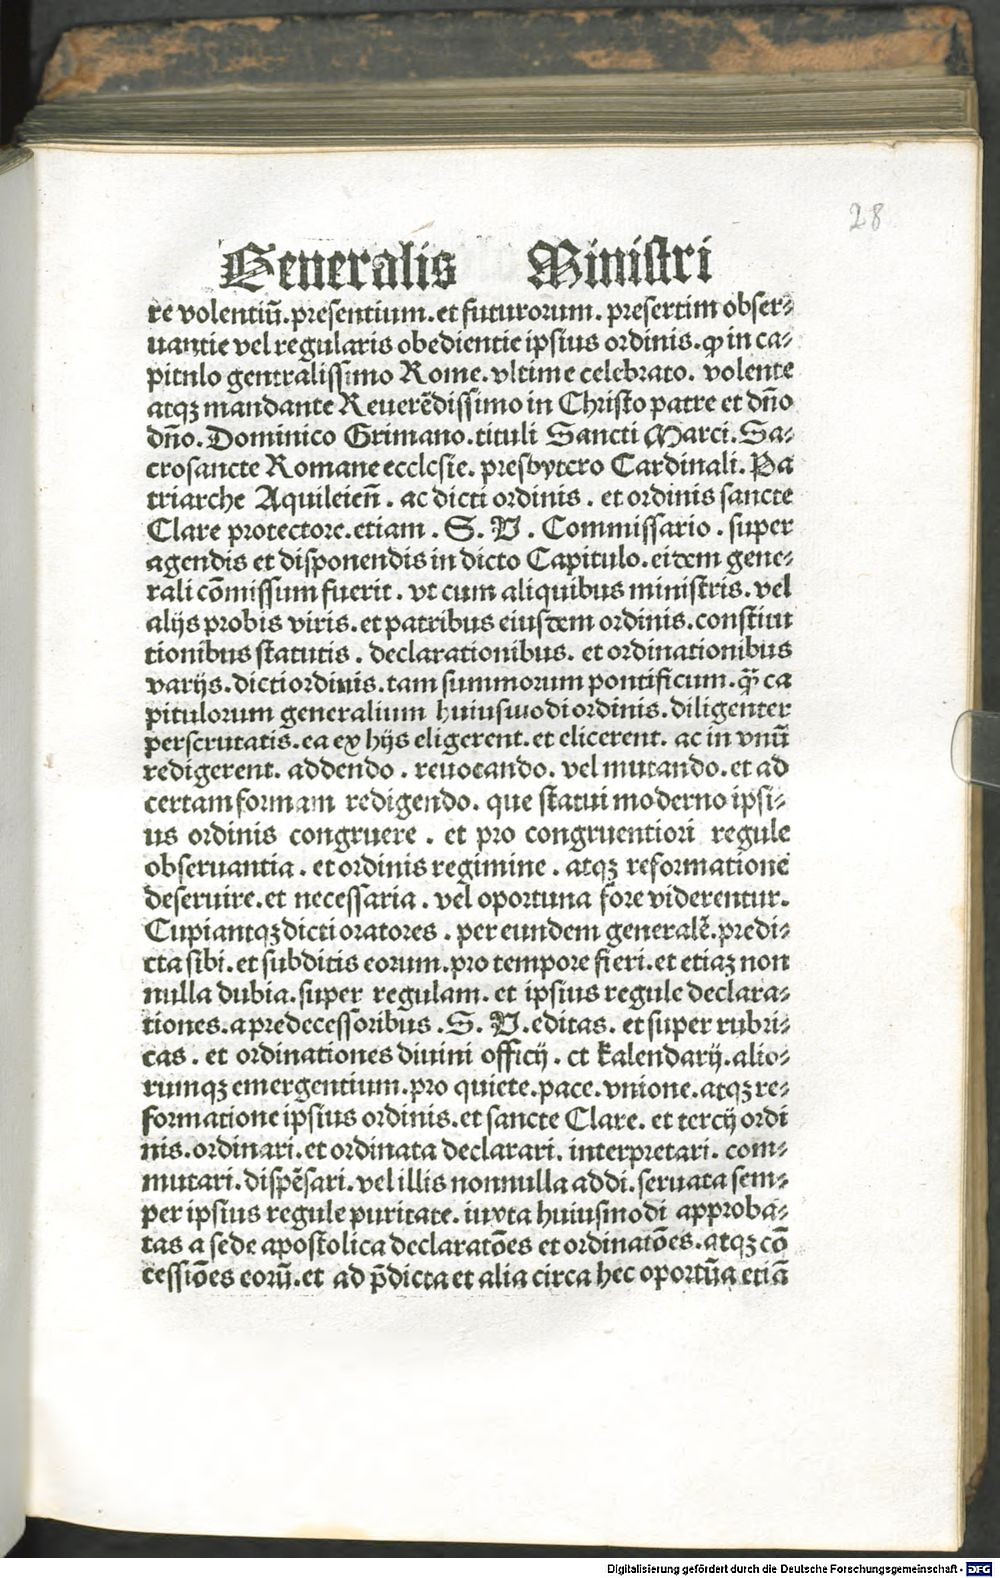 28
Generalis Ministri
re volentiū. presentium. et futurorum. presertim obser⸗
uantie vel regularis obedientie ipsius ordinis. ꝙ in ca⸗
pitulo generalissimo Rome. vltime celebrato. volente
atqꝫ mandante Reuerēdissimo in Christo patre et dño
dño. Dominico Grimano. tituli Sancti Marci. Sa⸗
crosancte Romane ecclesie. presbytero Cardinali. Pa
triarche Aquileieñ. ac dicti ordinis. et ordinis sancte
Clare protectore. etiam. S. V. Commissario. super
agendis et disponendis in dicto Capitulo. eidem gene⸗
rali cōmissum fuerit. vt cum aliquibus ministris. vel
alijs probis viris. et patribus eiusdem ordinis. constitu
tionibus statutis. declarationibus. et ordinationibus
varijs. dicti ordinis. tam summorum pontificum. q̄ꝫ ca
pitulorum generalium huiusmodi ordinis. diligenter
perscrutatis. ea ex hijs eligerent. et elicerent. ac in vnū
redigerent. addendo. reuocando. vel mutando. et ad
certam formam redigendo. que statui moderno ipsi⸗
us ordinis congruere. et pro congruentiori regule
obseruantia. et ordinis regimine. atqꝫ reformatione
deseruire. et necessaria. vel oportuna fore viderentur.
Cupiantqꝫ dicti oratores. per eundem generalē. predi⸗
cta sibi. et subditis eorum. pro tempore fieri. et etiaꝫ non
nulla dubia. super regulam. et ipsius regule declara⸗
tiones. a predecessoribus. S. V. editas. et super rubri⸗
cas. et ordinationes diuini officij. et kalendarij. alio⸗
rumqꝫ emergentium. pro quiete. pace. vnione. atqꝫ re⸗
formatione ipsius ordinis. et sancte Clare. et tercij ordi
nis. ordinari. et ordinata declarari. interpretari. com⸗
mutari. dispēsari. vel illis nonnulla addi. seruata sem⸗
per ipsius regule puritate. iuxta huiusmodi approba⸗
tas a sede apostolica declaratōes et ordinatōes. atqꝫ cō
cessiōes eorū. et ad p̄dicta et alia circa hec oportūa etiā
Digitalisierung gefördert durch die Deutsche Forschungsgemeinschaft - DFG